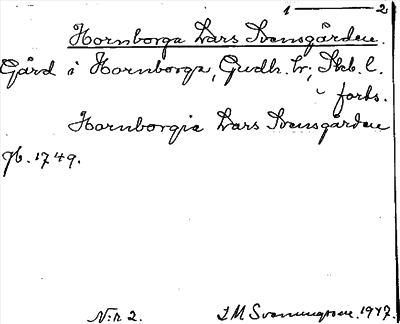 1 — 2
Hornborga Lars Svensgården.
Gård i Hornborga, Gudh. hr; Skb. l.
forts.
Hornborgia Lars Svensgården
jb. 1749.
N:r 2. I M Svenungsson. 1947.